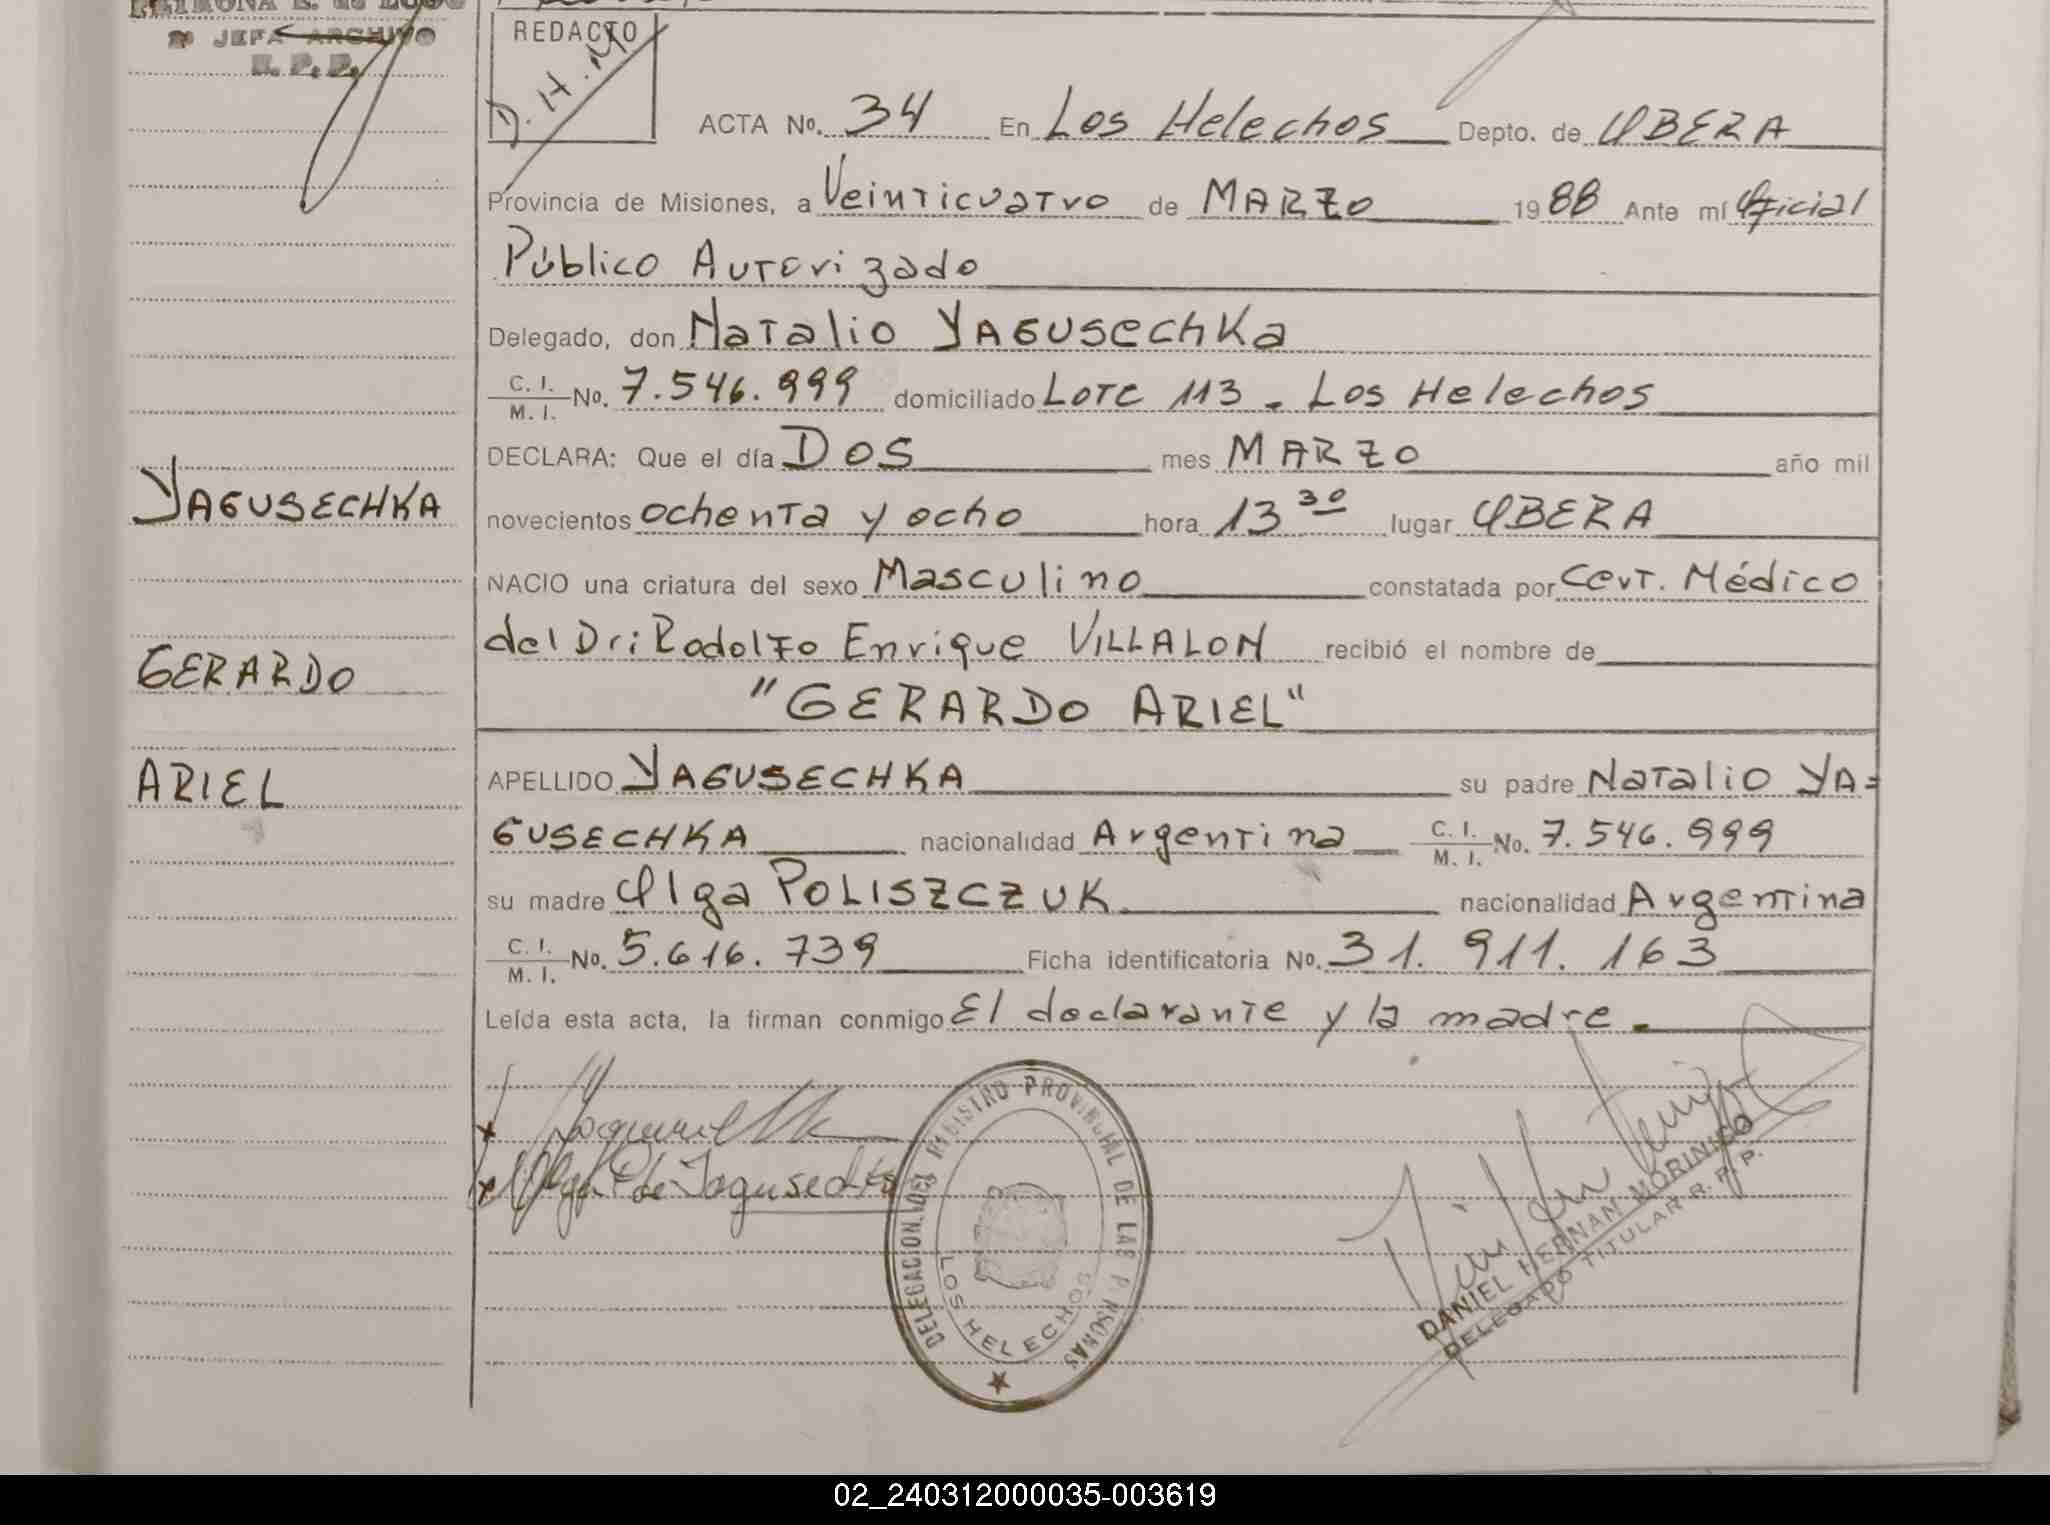 JEFA ARCHIVO
R. P. P.
REDACTO
D. H. M.
ACTA No. 34 En Los Helechos Depto. de OBERA
Provincia de Misiones, a Veinticuatro de MARZO 1988 Ante mí Oficial
Público Autorizado
Delegado, don Natalio YAGUSechKa
C. I. / M. I. No. 7.546.999 domiciliado Lote 113 - Los Helechos
DECLARA: Que el día DOS mes MARZO año mil
YAGUSECHKA
novecientos ochenta y ocho hora 13 30 lugar OBERA
NACIO una criatura del sexo Masculino constatada por Cert. Médico
del Dr: Rodolfo Enrique VILLALON recibió el nombre de
GERARDO
"GERARDO ARIEL"
ARIEL
APELLIDO YAGUSECHKA su padre Natalio YA=
GUSECHKA nacionalidad Argentina C. I. / M. I. No. 7.546.999
su madre Olga POLISZCZUK nacionalidad Argentina
C. I. / M. I. No. 5.616.739 Ficha identificatoria No. 31. 911. 163
Leída esta acta, la firman conmigo El declarante y la madre.
Olga P de Yagusechka
DELEGACION DEL REGISTRO PROVINCIAL DE LAS PERSONAS
LOS HELECHOS
DANIEL HERNAN MORINIGO
DELEGADO TITULAR R. P. P.
02_240312000035-003619